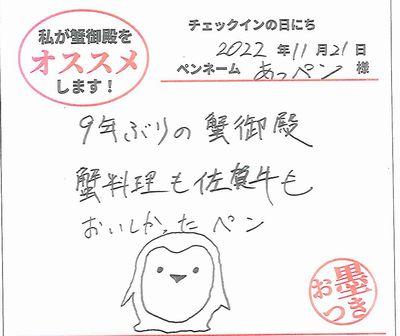 私が蟹御殿を
オススメ
します！
チェックインの日にち
2022 年 11 月 21 日
ペンネーム あっペン 様
9年ぶりの蟹御殿
蟹料理も佐賀牛も
おいしかったペン
お墨つき